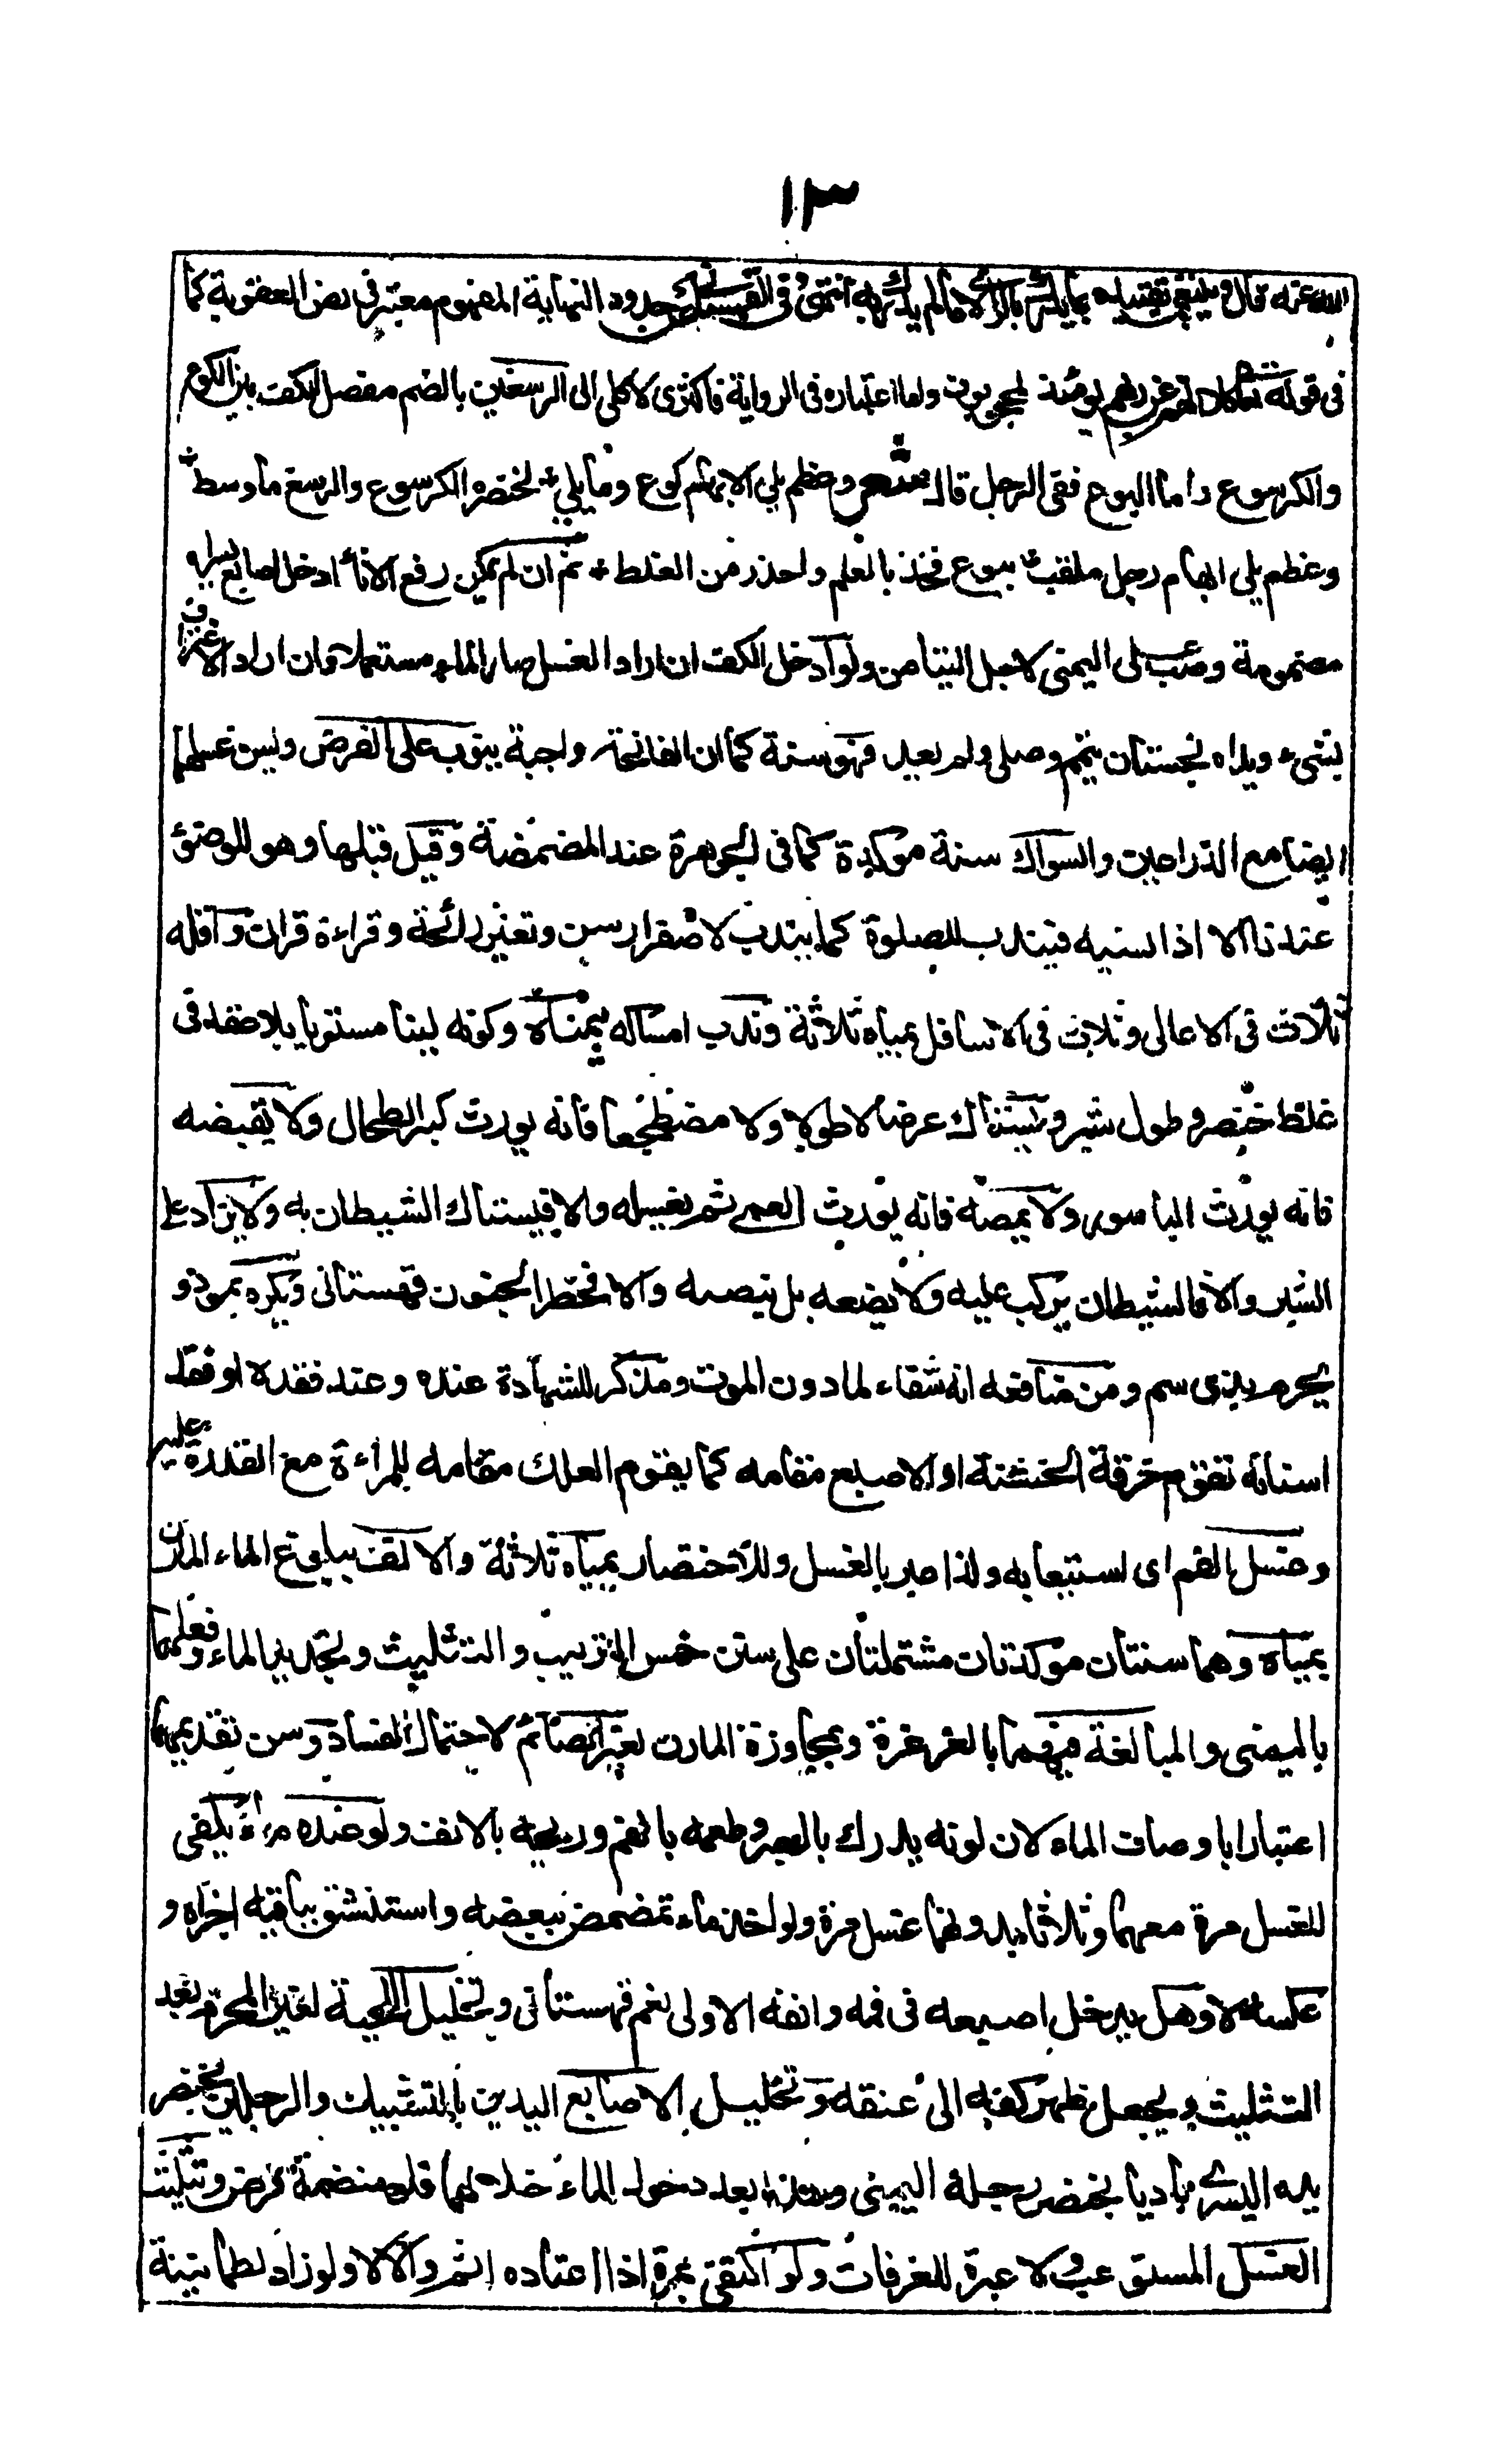 ١٣
الله عنه قال وينبغي تقييده بما يدرك بالرأي لا ما لم يدرك به انتهى وفي القهستاني عن حدود النهاية المفهوم معتبر في نص العقوبة كما
في قوله تعالى كلا انهم عن ربهم يومئذ لمحجوبون واما اعتباره في الرواية فاكثرى لا كلى الى الرسغين بالضم مفصل الكف بين الكوع
والكرسوع واما البوع ففى الرجل قال شعر وعظم يلي الابهام كوع وما يلي لخنصره الكرسوع والرسغ ما وسط
وعظم يلي ابهام رجل ملقب ببوع فخذ بالعلم واحذر من الغلط ثم ان لم يمكن رفع الاناء ادخل اصابع يسراه
مضمومة وصب على اليمنى لاجل التيامن ولو ادخل الكف ان اراد الغسل صار الماء مستعملا وان اراد الاغتراف
بشيء ويداه نجستان تيمم وصلى ولم يعد فهو سنة كما ان الفاتحة واجبة ينوب على الفرض ويسن غسلهما
ايضا مع الذراعين والسواك سنة مؤكدة كما في الجوهرة عند المضمضة وقيل قبلها وهو للوضوء
عندنا الا اذا نسيه فيندب للصلوة كما يندب لاصفرار سن وتغير رائحة وقراءة قران واقله
ثلاث في الاعالى وثلاث في الاسافل بمياه ثلاثة وندب امساكه بيمناه وكونه لينا مستويا بلا عقد في
غلظ خنصر وطول شبر ويستاك عرضا لا طولا ولا مضطجعا فانه يورث كبر الطحال ولا يقبضه
فانه يورث الباسور ولا يمصه فانه يورث العمى ثم يغسله والا فيستاك الشيطان به ولا يزاد على
الشبر والا فالشيطان يركب عليه ولا يضعه بل ينصبه والا فخطر الجنون قهستانى ويكره بموذو
يحرم بذى سم ومن منافعه انه شفاء لما دون الموت ومذكر للشهادة عنده وعند فقده او فقد
اسنانه تقوم خرقة الخشنة او الاصبع مقامه كما يقوم العلك مقامه للمراءة مع القدرة عليه
وغسل الفم اى استيعابه ولذا عبر بالغسل وللاختصار بمياه ثلاثة والانف ببلوغ الماء المارن
بمياه وهما سنتان مؤكدتان مشتملتان على سنن خمس الترتيب والتثليث وتجديد الماء وفعلهما
باليمنى والمبالغة فيهما بالغرغرة ومجاوزة المارن لغير الصائم لاحتمال الفساد وسن تقديمهما
اعتبارا باوصاف الماء لان لونه يدرك بالبصر وطعمه بالفم وريحه بالانف ولو عنده ماء يكفى
للغسل مرة معهما وثلاثا بدونهما غسل مرة ولو اخذ ماء تمضمض ببعضه واستنشق بباقيه اجزاه و
عكسه لا وهل يدخل اصبعه في فمه وانفه الاولى نعم قهستانى وتخليل اللحية لغير المحرم بعد
التثليث ويجعل ظهر كفه الى عنقه وتخليل الاصابع اليدين بالتشبيك والرجلين بخنصر
يده اليسرى باديا بخنصر رجله اليمنى وهذا بعد دخول الماء خلالهما فلو منضمة فرض وتثليث
الغسل المستوعب ولا عبرة للغرفات ولو اكتفى بمرة اذا اعتاده اثم والا لا ولو زاد لطمانينة